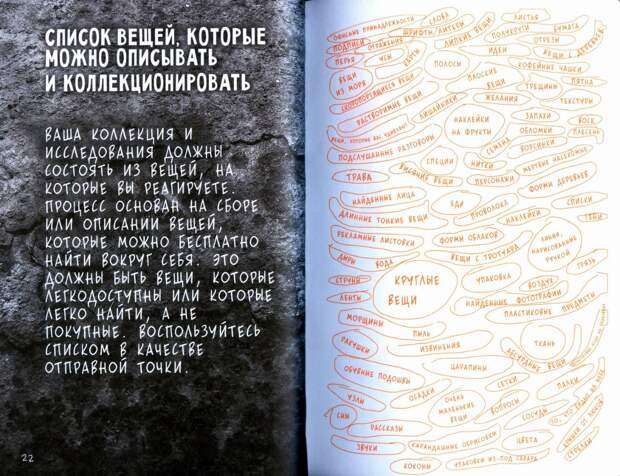 СПИСОК ВЕЩЕЙ, КОТОРЫЕ
МОЖНО ОПИСЫВАТЬ
И КОЛЛЕКЦИОНИРОВАТЬ
ВАША КОЛЛЕКЦИЯ И
ИССЛЕДОВАНИЯ ДОЛЖНЫ
СОСТОЯТЬ ИЗ ВЕЩЕЙ, НА
КОТОРЫЕ ВЫ РЕАГИРУЕТЕ.
ПРОЦЕСС ОСНОВАН НА СБОРЕ
ИЛИ ОПИСАНИИ ВЕЩЕЙ,
КОТОРЫЕ МОЖНО БЕСПЛАТНО
НАЙТИ ВОКРУГ СЕБЯ. ЭТО
ДОЛЖНЫ БЫТЬ ВЕЩИ, КОТОРЫЕ
ЛЕГКОДОСТУПНЫ ИЛИ КОТОРЫЕ
ЛЕГКО НАЙТИ, А НЕ
ПОКУПНЫЕ. ВОСПОЛЬЗУЙТЕСЬ
СПИСКОМ В КАЧЕСТВЕ
ОТПРАВНОЙ ТОЧКИ.
22
ОФИСНЫЕ ПРИНАДЛЕЖНОСТИ
СЛОВА
ЛИСТЬЯ
ПОДПИСИ
ОТРАЖЕНИЕ
ШРИФТЫ/ЛИТЕРЫ
ЛИПКИЕ ВЕЩИ
БУМАГА
ПЕРЬЯ
УСЫ
КАРТЫ
ИДЕИ
ОТРЕЗЫ
ВЕЩИ С ДЕРЕВЬЕВ
ВЕЩИ
ИЗ МОРЯ
ПОЛОСЫ
КОФЕЙНЫЕ ЧАШКИ
СКОРОПОРТЯЩИЕСЯ ВЕЩИ
ПЛОСКИЕ
ВЕЩИ
ТРЕЩИНЫ
ПЯТНА
РАСТВОРИМЫЕ ВЕЩИ
ЛИШАЙНИКИ
ЖЕЛАНИЯ
ТЕКСТУРЫ
НАКЛЕЙКИ
НА ФРУКТЫ
ЗАПАХИ
ВОСК
ОБЛОМКИ
ПЛЕСЕНЬ
ПОДСЛУШАННЫЕ РАЗГОВОРЫ
СЕМЕНА
ВОРСИНКИ
СПЕЦИИ
НИТКИ
МЕРТВЫЕ НАСЕКОМЫЕ
ТРАВА
ВИСЯЧИЕ ВЕЩИ
ПЕРСОНАЖИ
ФОРМЫ ДЕРЕВЬЕВ
НАЙДЕННЫЕ ЛИЦА
ЕДА
ПРОВОЛОКА
СПИСКИ
ДЛИННЫЕ ТОНКИЕ ВЕЩИ
НАКЛЕЙКИ
ТЕНИ
РЕКЛАМНЫЕ ЛИСТОВКИ
ФОРМЫ ОБЛАКОВ
ЛИНИЯ,
НАРИСОВАННАЯ
РУЧКОЙ
ДЫРЫ
ВОДА
ВЕЩИ С ТРОТУАРА
ГРЯЗЬ
СТРУНЫ
КРУГЛЫЕ
ВЕЩИ
УПАКОВКА
ВОЗДУХ
ЛЕНТЫ
НАЙДЕННЫЕ ФОТОГРАФИИ
МОРЩИНЫ
ПЛАСТИКОВЫЕ ПРЕДМЕТЫ
ПЫЛЬ
РАКУШКИ
ИЗВИНЕНИЯ
ТКАНЬ
ОБУВНЫЕ ПОДОШВЫ
ЦАРАПИНЫ
АБСУРДНЫЕ ВЕЩИ
УЗЛЫ
ОСАДКИ
СЕТКИ
ПАЛКИ
СНЫ
ОЧЕНЬ
МАЛЕНЬКИЕ
ВЕЩИ
ВОПРОСЫ
РАССКАЗЫ
СОСУДЫ
ЗВУКИ
КАРАНДАШНЫЕ ОБРИСОВКИ
ЦВЕТА
КОКОНЫ
УПАКОВКИ ИЗ-ПОД САХАРА